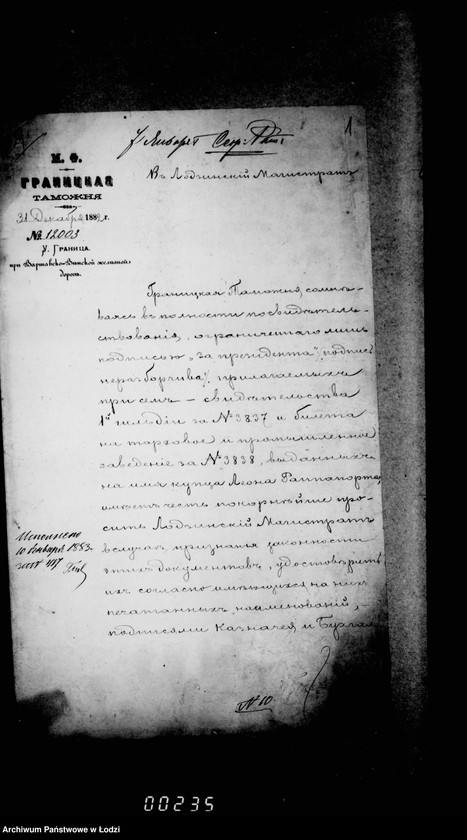 1
7 Января
М. Ф.
ГРАНИЦКАЯ
ТАМОЖНЯ
31 Декабря 1882 г.
№ 12003
У. ГРАНИЦА.
при Варшавско-Вѣнской желѣзной
дорогѣ.
Въ Лодзинскій Магистратъ
Границкая Таможня, сомнѣ-
ваясь въ полности посвидѣтель-
ствованія, ограниченнаго лишь
подписью „за президента" /подпись
неразборчива/, прилагаемыхъ
при семъ – свидѣтельства
1й гильдіи за № 3837 и билета
на торговое и промышленное
заведеніе за № 3838, выданныхъ
на имя купца Леона Раппапорта,
имѣетъ честь покорнѣйше про-
сить Лодзинскій Магистратъ
въ случаѣ признанія законности
этихъ документовъ, удостовѣрить
ихъ согласно имѣющихся на нихъ
печатанныхъ наименованій,
подписями Казначея и
Исполнено
10 Января 1883 г.
№ 10
00235
Archiwum Państwowe w Łodzi